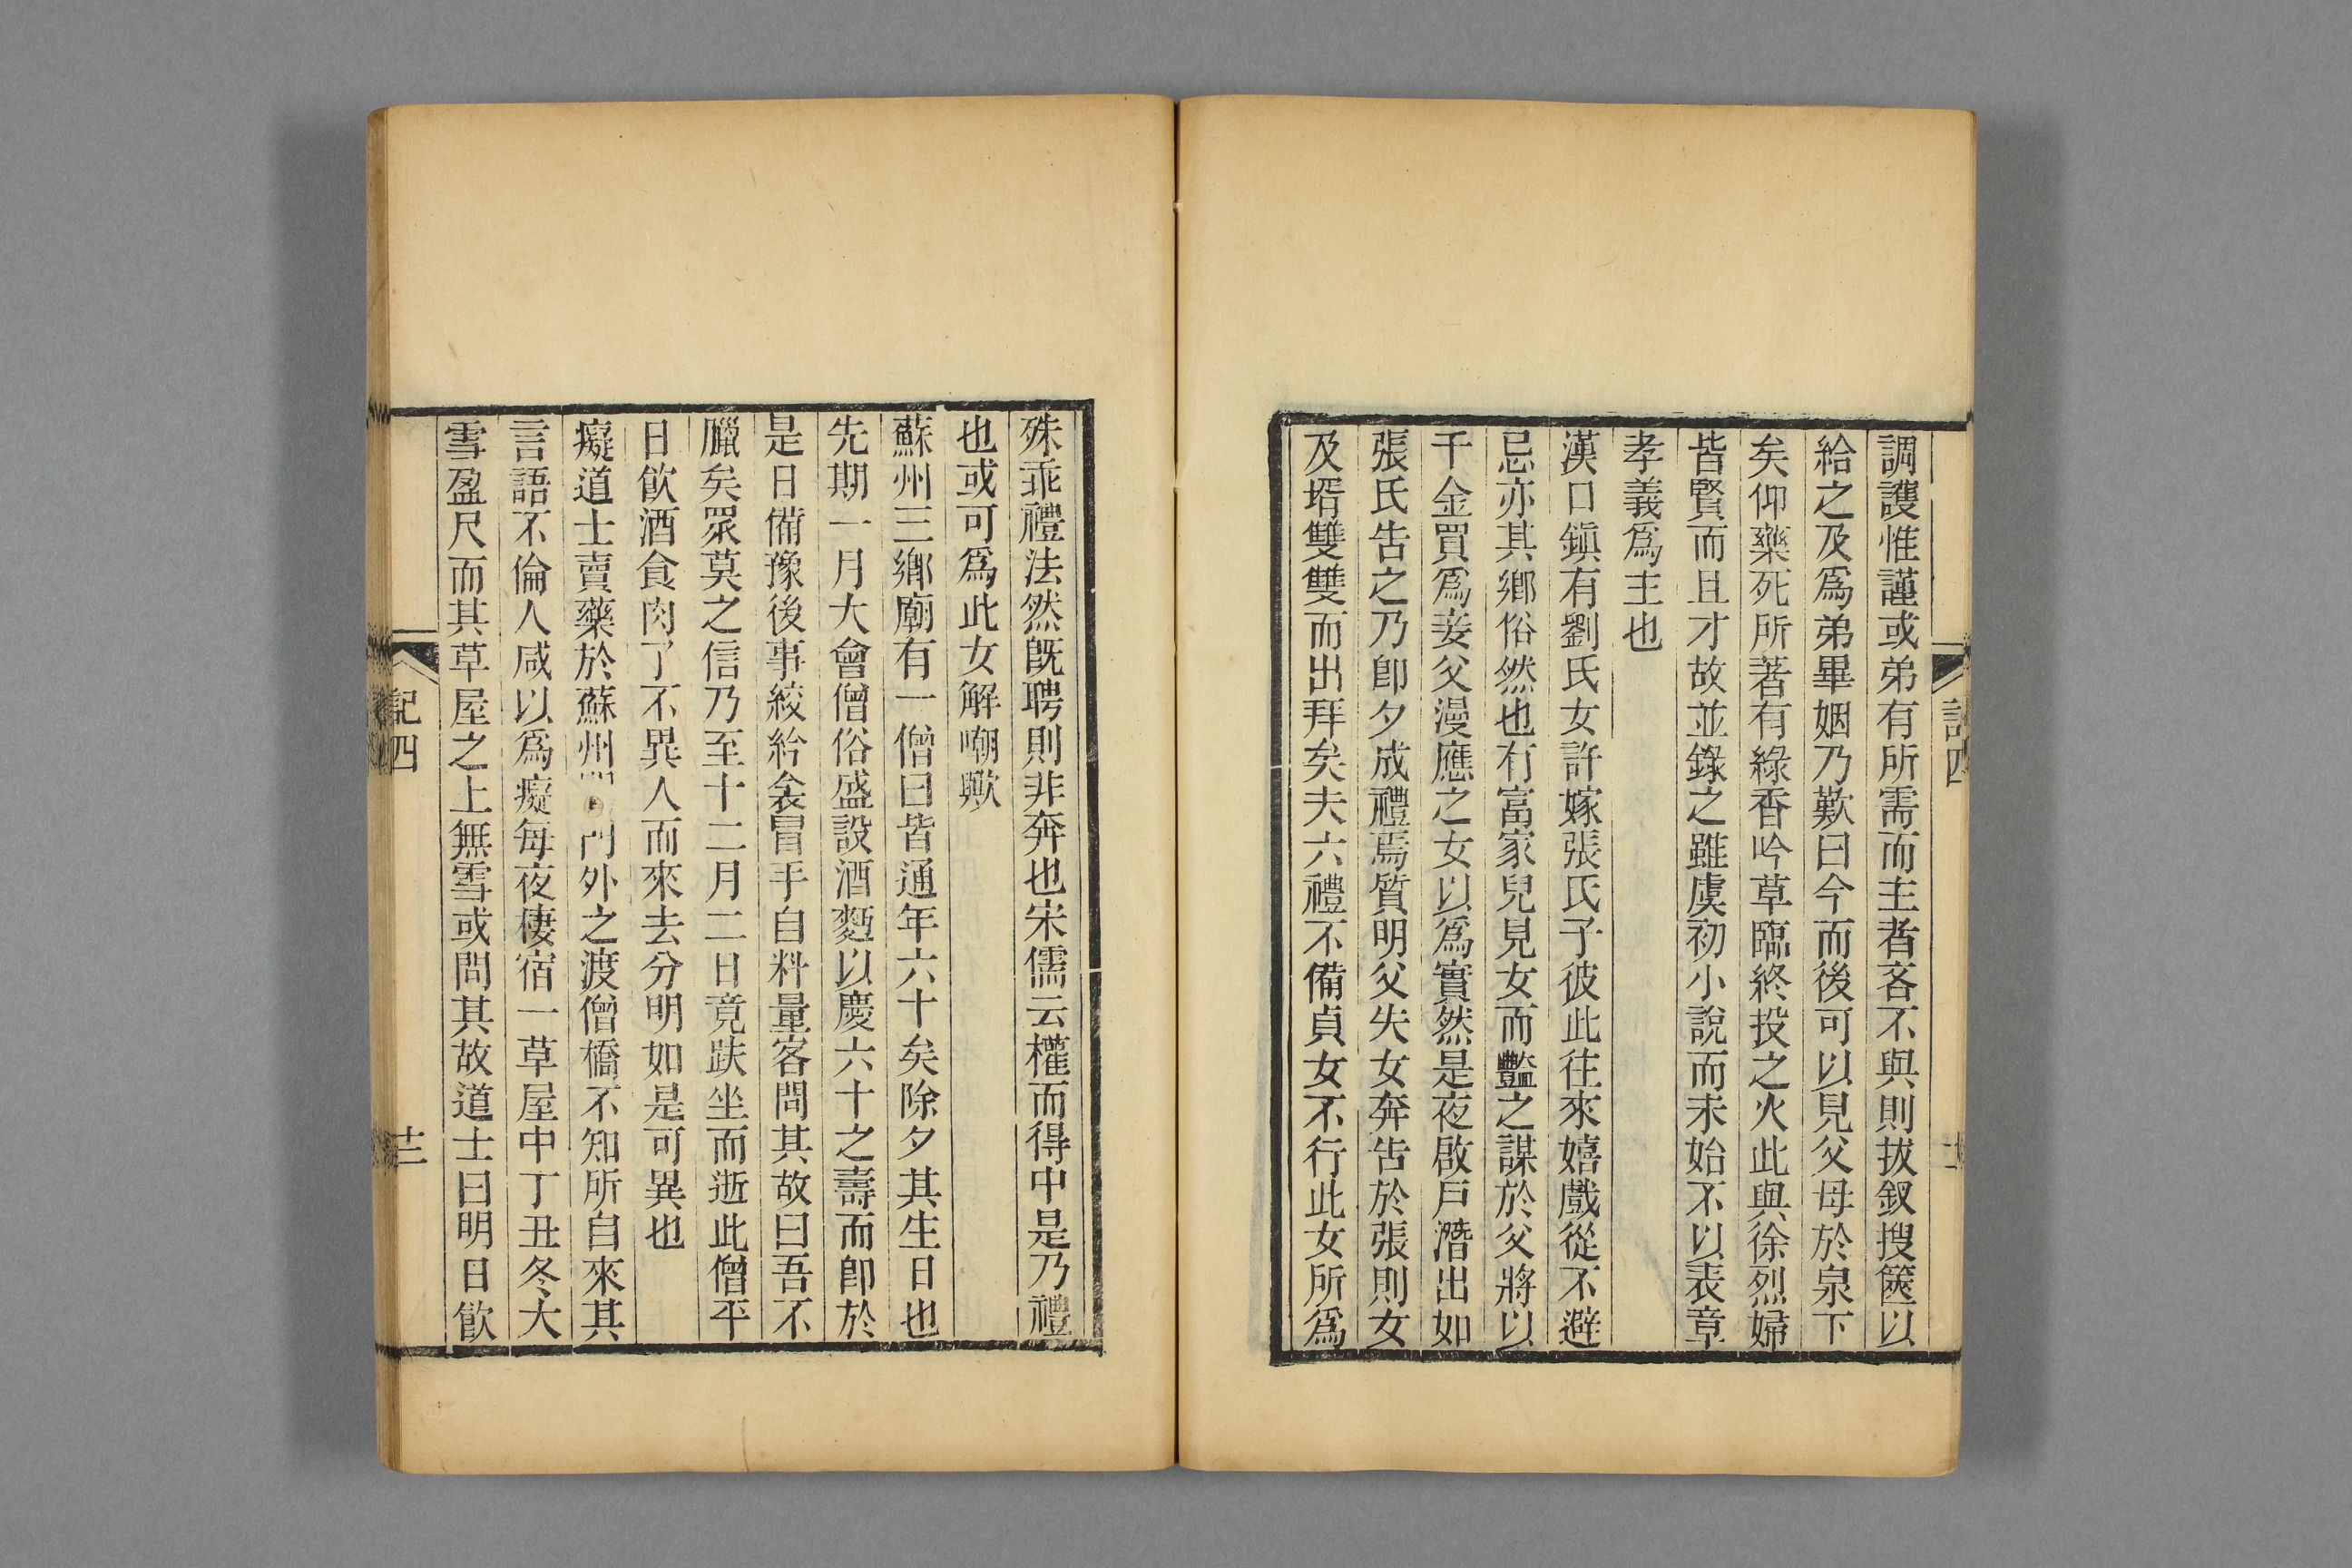 調護惟謹或弟有所需而主者吝不與則拔釵搜篋以
給之及爲弟畢姻乃歎曰今而後可以見父母於泉下
矣仰藥死所著有綠香吟草臨終投之火此與徐烈婦
皆賢而且才故並錄之雖虞初小說而未始不以表章
孝義爲主也
漢口鎭有劉氏女許嫁張氏子彼此往來嬉戲從不避
忌亦其鄉俗然也有富家兒見女而豔之謀於父將以
千金買爲妾父漫應之女以爲實然是夜啟戸潛出如
張氏告之乃卽夕成禮焉質明父失女奔告於張則女
及壻雙雙而出拜矣夫六禮不備貞女不行此女所爲
殊乖禮法然旣聘則非奔也宋儒云權而得中是乃禮
也或可爲此女解嘲歟
蘇州三鄉廟有一僧曰皆通年六十矣除夕其生日也
先期一月大會僧俗盛設酒麪以慶六十之壽而卽於
是日備豫後事絞紟衾冒手自料量客問其故曰吾不
臘矣眾莫之信乃至十二月二日竟趺坐而逝此僧平
日飮酒食肉了不異人而來去分明如是可異也
癡道士賣藥於蘇州門外之渡僧橋不知所自來其
言語不倫人咸以爲癡每夜棲宿一草屋中丁丑冬大
雪盈尺而其草屋之上無雪或問其故道士曰明日飮
記四
十三